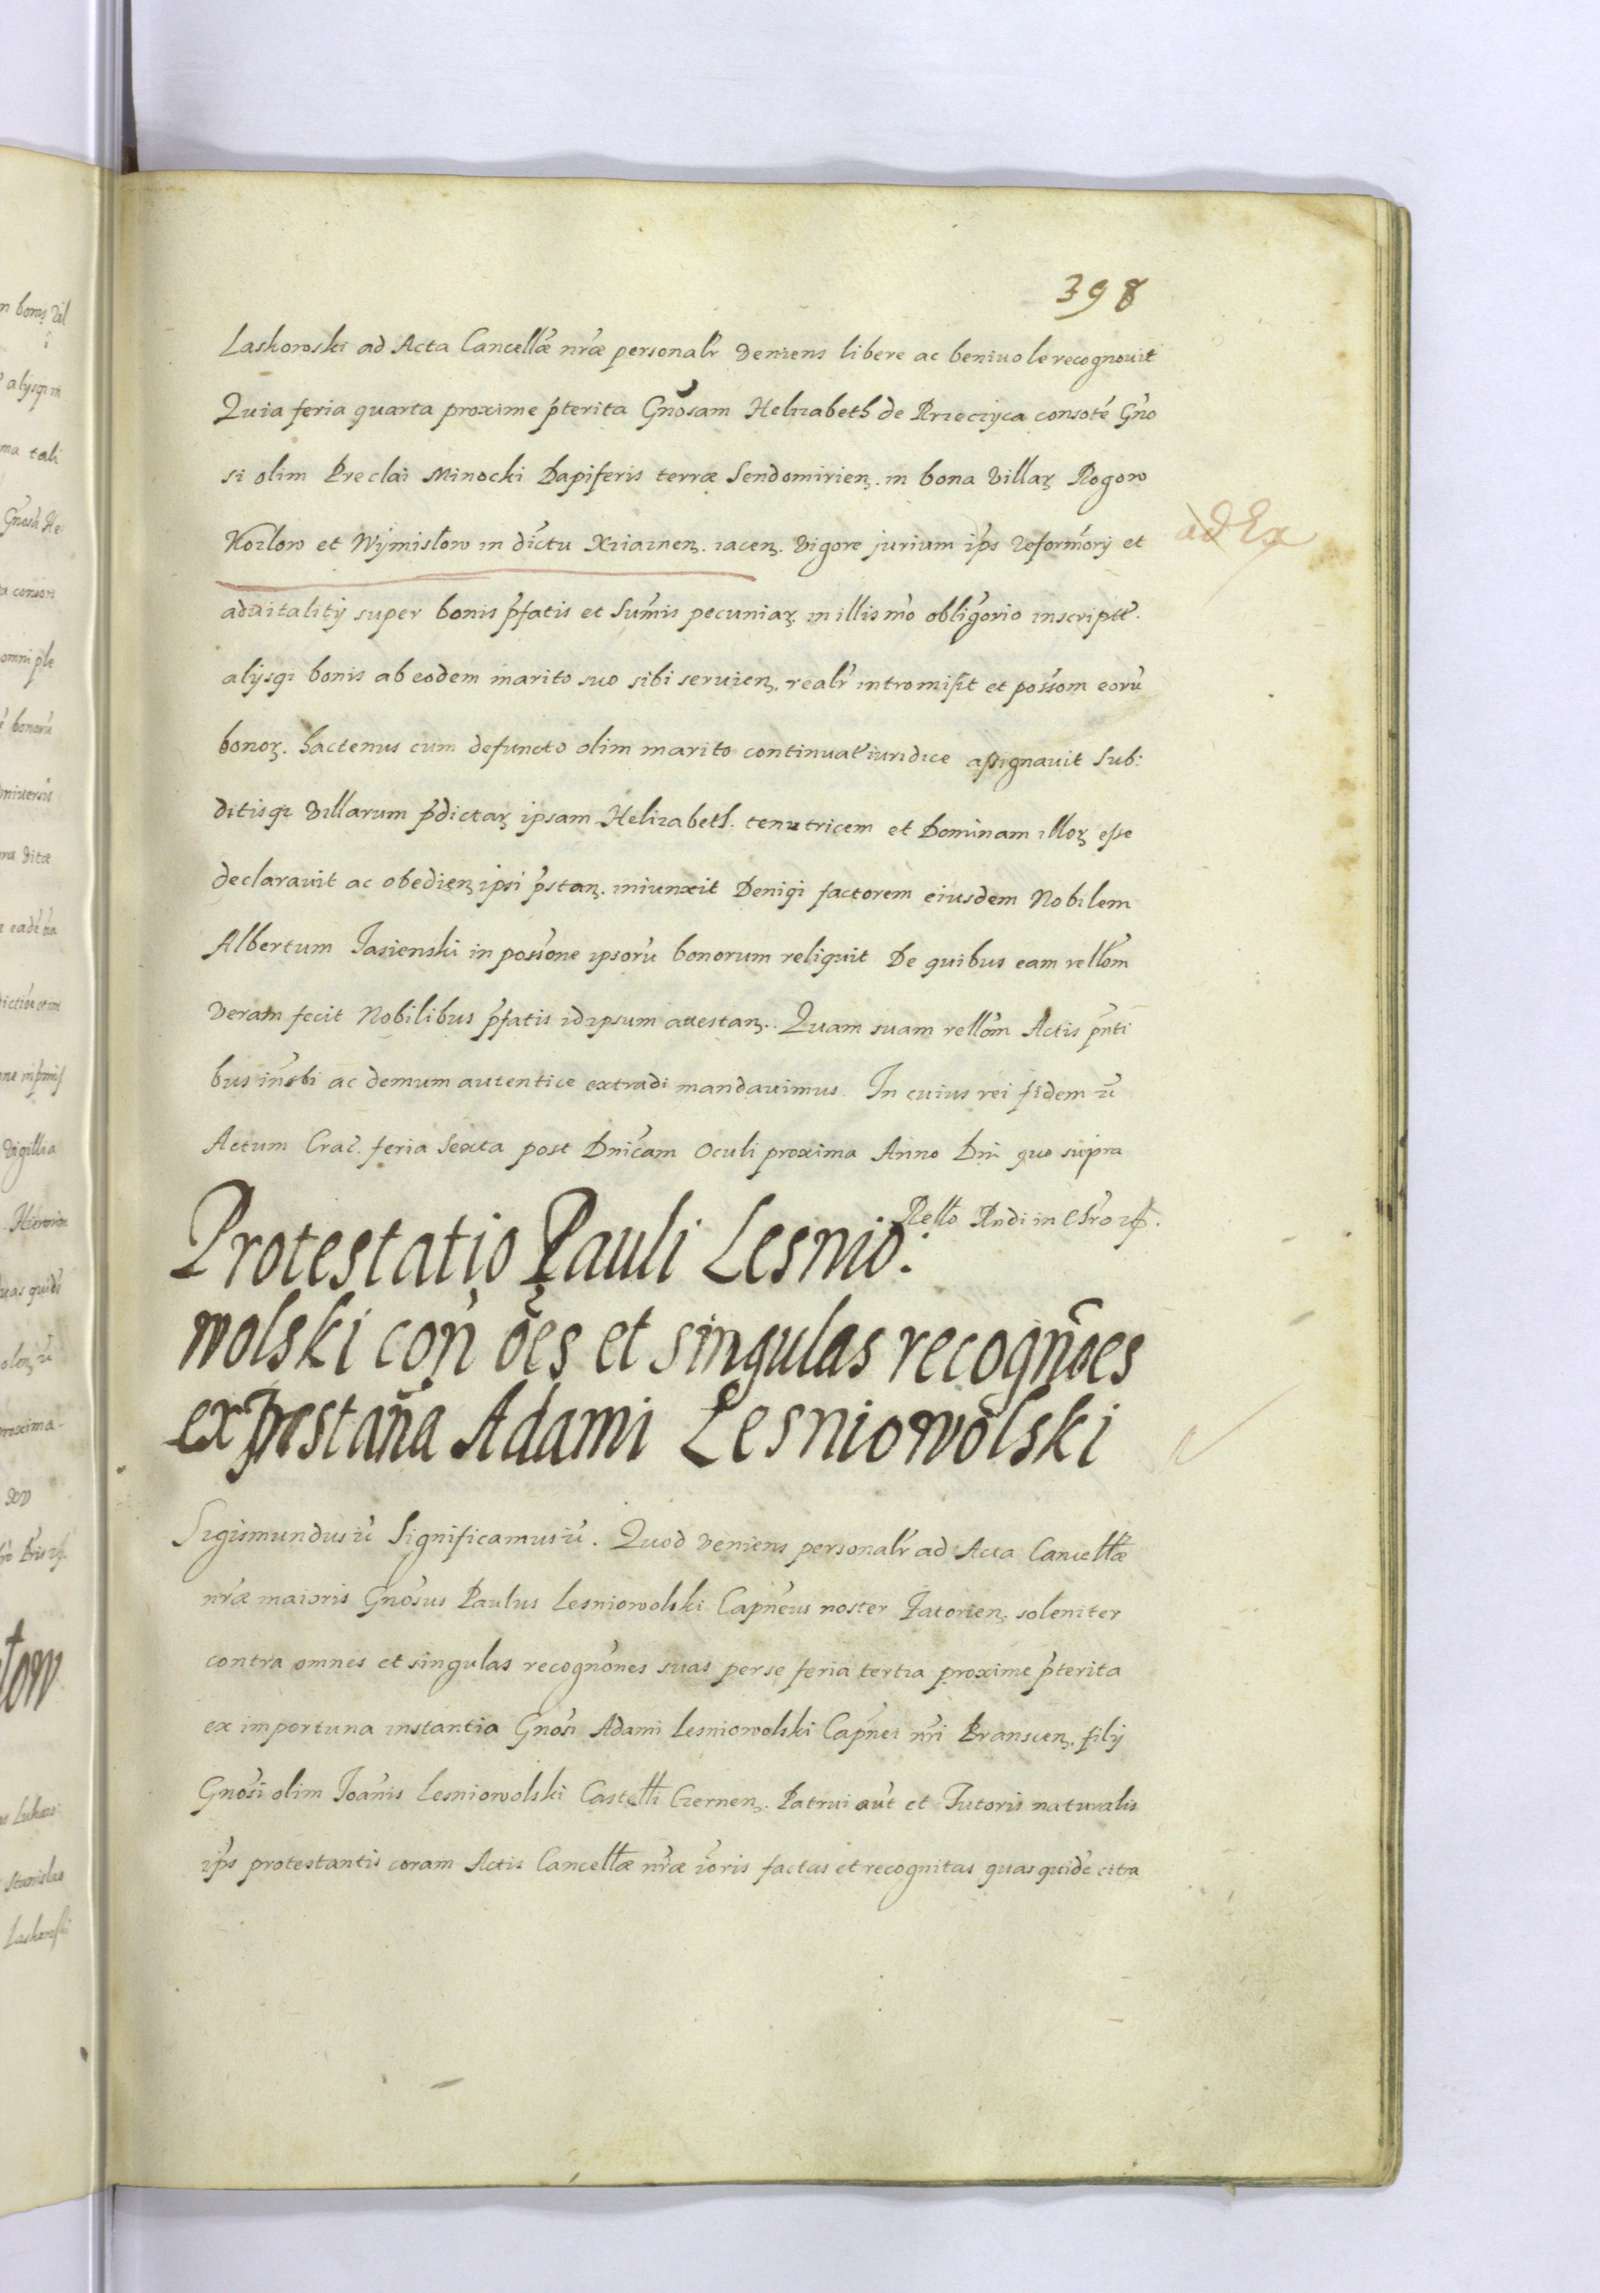 398
Laskowski ad Acta Cancellæ nr̃æ personalr̃ veniens libere ac beniuole recognouit
Quia feria quarta proxime p̃terita Gnõsam Helizabeth de Rzeczyca consotẽ Gño
si olim Preclai Minocki Dapiferis terræ Sendomirienꝫ. in bona villaꝝ Rogow
Kozlow et Wymislow in dic̃tu Xziaznenꝫ. iacenꝫ. vigore jurium ip̃s reformõrij et
aduitalitij super bonis p̃fatis et Sum̃is pecuniaꝝ. in illis m̃o oblig̃orio inscriptẽ.
alijsqꝫ bonis ab eodem marito suo sibi seruienꝫ. realr̃ intromisit et poss̃om eorũ
bonoꝝ. hactenus cum defuncto olim marito continuatẽ iuridice assignauit Sub:
ditisqꝫ villarum p̃dictaꝝ ipsam Helizabeth. tenutricem et Dominam illoꝝ esse
declarauit ac obedienꝫ ipsi p̃stanꝫ. iniunxit Deniqꝫ factorem eiusdem Nobilem
Albertum Jasienski in poss̃one ipsorũ bonorum reliquit De quibus eam rell̃om
veram fecit Nobilibus p̃fatis idipsum attestanꝫ. Quam suam rell̃om Actis p̃nti
bus in̄sbi ac demum autentice extradi mandauimus. In cuius rei fidem ꝛc̃
Actum Crac̃. feria Sexta post Dnĩcam Oculi proxima Anno Dnĩ quo supra
Rell̃o Rndi in Chr̃o ꝛc̃.
Protestatio Pauli Lesnio:
wolski con̄ oẽs et singulas recogñoes
ex p̃estañа Adami Lesniowolski
Sigismundus ꝛc̃ Significamus ꝛc̃. Quod veniens personalr̃ ad Acta Cancellæ
nr̃æ maioris Gnõsus Paulus Lesniowolski Capñeus noster Zatorienꝫ. soleniter
contra omnes et singulas recogñones suas per se feria tertia proxime p̃terita
ex importuna instantia Gnõsi Adami Lesniowolski Capñei nr̃i Branscenꝫ. filij
Gnõsi olim Joãnis Lesniowolski Castell̃i Czernenꝫ. Patrui aũt et Tutoris naturalis
ip̃s protestantis coram Actis Cancellæ nr̃æ ĩoris factas et recognitas quas quidẽ citra